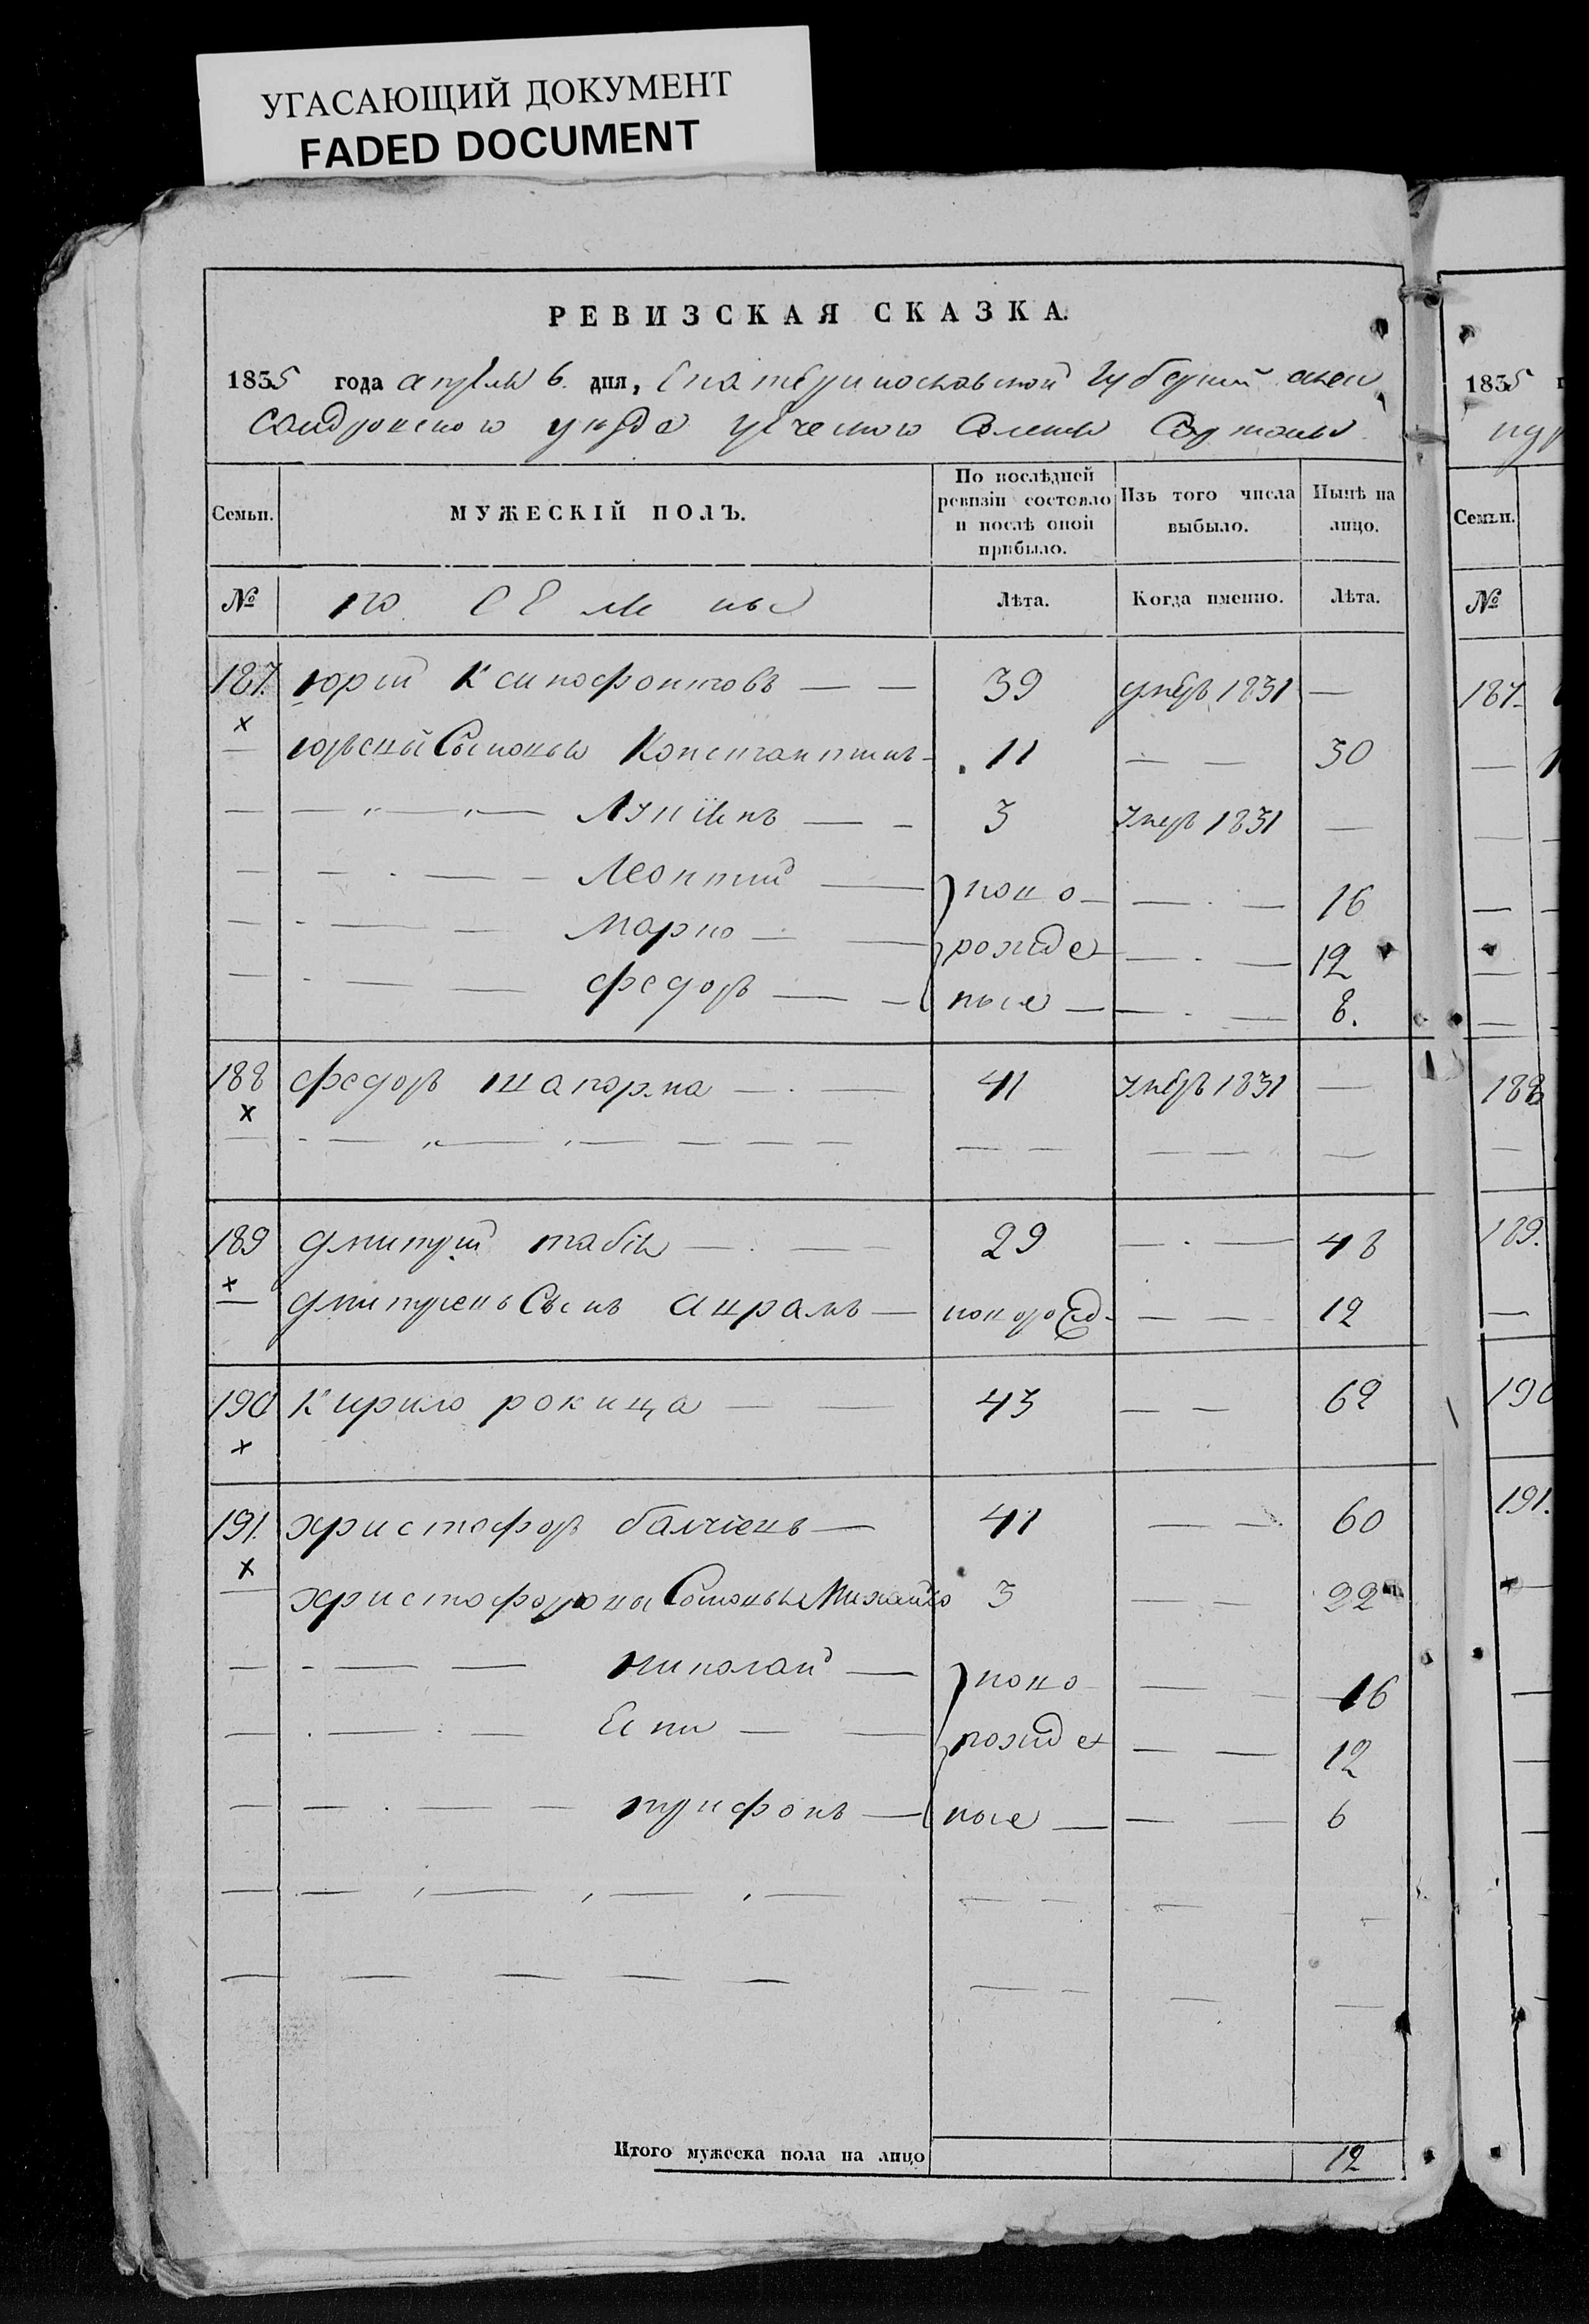 УГАСАЮЩИЙ ДОКУМЕНТ
FADED DOCUMENT
РЕВИЗСКАЯ СКАЗКА.
1835 года апреля 6. дня, Екатеринославской Губерний алек
сандровского уезда греческого Селения Сартаны
Семьи.
МУЖЕСКІЙ ПОЛЪ.
По послѣдней ревизіи состояло и послѣ оной прибыло.
Изъ того числа выбыло.
Нынѣ на лицо.
№
Лѣта.
Когда именно.
Лѣта.
187. юрий Ксинофонтовъ — — 39 умеръ 1831 —
юрьевы Сыновья Константинъ — 11 — — 30
3 умеръ 1831 —
Леонтий — поно — — 16
Марко — рожде — — 12
федоръ — ные — — 8.
188 федоръ шапорма — 41 умеръ 1831 —
189 дмитрий табія — 29 — — 48
дмитриевъ Сынъ аврамъ — новорожд — — 12
190 Кирило рокица — 43 — — 62
191. христофоръ балчіевъ — 41 — — 60
христофоровы Сыновья Михайло 3 — — 22
николай — ново — — 16
рожде — — 12
трифонъ — ные — — 6
Итого мужеска пола на лицо 12
1835
Семьи.
№
187.
188
189.
190
191.